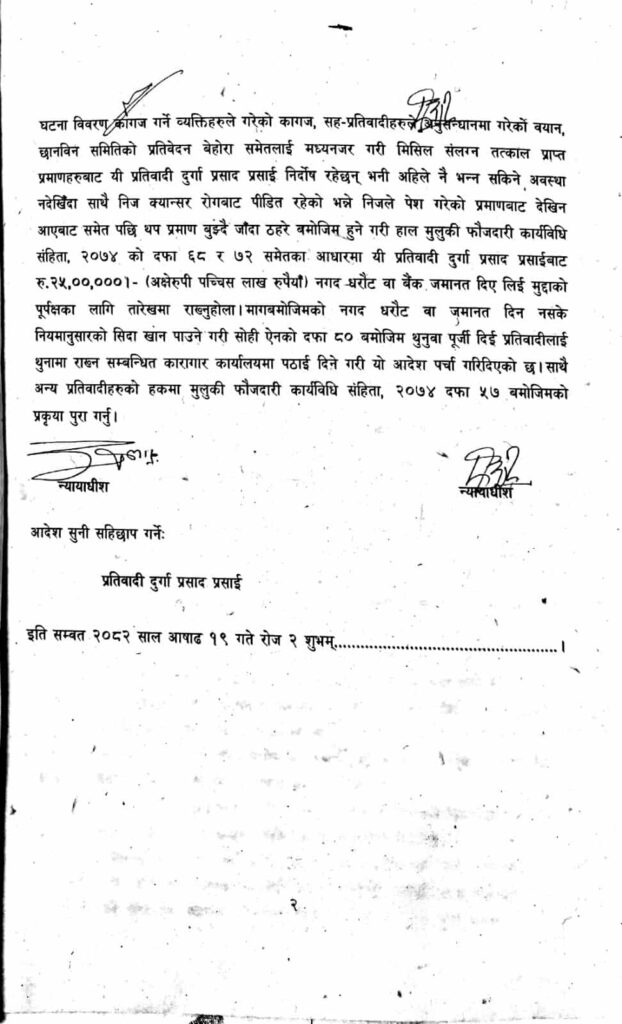 घटना विवरण कागज गर्ने व्यक्तिहरुले गरेको कागज, सह-प्रतिवादीहरुले अनुसन्धानमा गरेको वयान,
छानविन समितिको प्रतिवेदन बेहोरा समेतलाई मध्यनजर गरी मिसिल संलग्न तत्काल प्राप्त
प्रमाणहरुबाट यी प्रतिवादी दुर्गा प्रसाद प्रसाई निर्दोष रहेछन् भनी अहिले नै भन्न सकिने अवस्था
नदेखिँदा साथै निज क्यान्सर रोगबाट पीडित रहेको भन्ने निजले पेश गरेको प्रमाणबाट देखिन
आएबाट समेत पछि थप प्रमाण बुझ्दै जाँदा ठहरे बमोजिम हुने गरी हाल मुलुकी फौजदारी कार्यविधि
संहिता, २०७४ को दफा ६८ र ७२ समेतका आधारमा यी प्रतिवादी दुर्गा प्रसाद प्रसाईबाट
रु.२५,००,०००।- (अक्षेरुपी पच्चिस लाख रुपैयाँ) नगद धरौट वा बैंक जमानत दिए लिई मुद्दाको
पूर्पक्षका लागि तारेखमा राख्नुहोला। मागबमोजिमको नगद धरौट वा जमानत दिन नसके
नियमानुसारको सिदा खान पाउने गरी सोही ऐनको दफा ८० बमोजिम थुनुवा पूर्जी दिई प्रतिवादीलाई
थुनामा राख्न सम्बन्धित कारागार कार्यालयमा पठाई दिने गरी यो आदेश पर्चा गरिदिएको छ। साथै
अन्य प्रतिवादीहरुको हकमा मुलुकी फौजदारी कार्यविधि संहिता, २०७४ दफा ५७ बमोजिमको
प्रकृया पुरा गर्नु।
न्यायाधीश
न्यायाधीश
आदेश सुनी सहिछाप गर्नेः
प्रतिवादी दुर्गा प्रसाद प्रसाई
इति सम्बत २०८२ साल आषाढ १९ गते रोज २ शुभम्.......................................................।
२